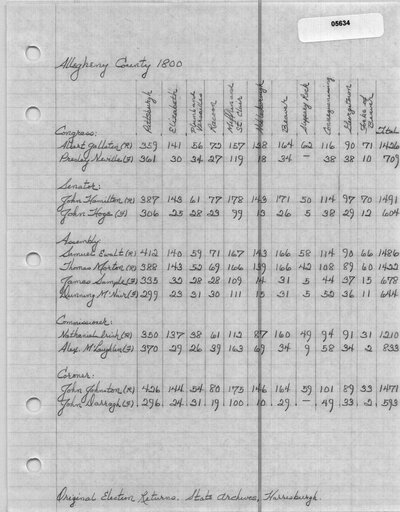 05634
Allegheny County 1800
Pittsburgh Elizabeth Plum and Versailles Racoon Mifflin and St. Clair Beaver Slippery Rock Georgetown Forks of Beaver Total
Congress:
Albert Gallatin (R) 359 141 56 72 157 138 164 62 116 90 71 1426
Presley Neville (F) 361 30 34 27 119 18 34 — 38 38 10 709
Senator:
John Hamilton (R) 387 143 61 77 178 143 171 50 114 97 70 1491
John Hoge (F) 306 25 28 23 99 13 26 5 38 29 12 604
Assembly:
Samuel Ewalt (R) 412 140 59 71 167 143 166 58 114 90 66 1486
Thomas Morton (R) 388 143 52 69 166 139 166 42 108 89 60 1422
James Sample (F) 335 32 28 28 109 14 31 5 44 37 15 678
Dunning McNair (F) 299 23 31 30 111 15 31 5 52 36 11 644
Commissioner:
Nathaniel Irish (R) 350 137 38 61 112 87 160 49 94 91 31 1210
Alex. McLaughlin (F) 370 29 26 39 163 69 34 9 58 34 2 833
Coroner:
John Johnston (R) 426 144 54 80 175 146 164 59 101 89 33 1471
John Darragh (F) 296 24 31 19 100 10 29 — 49 33 2 593
Original Election Returns. State Archives, Harrisburgh.